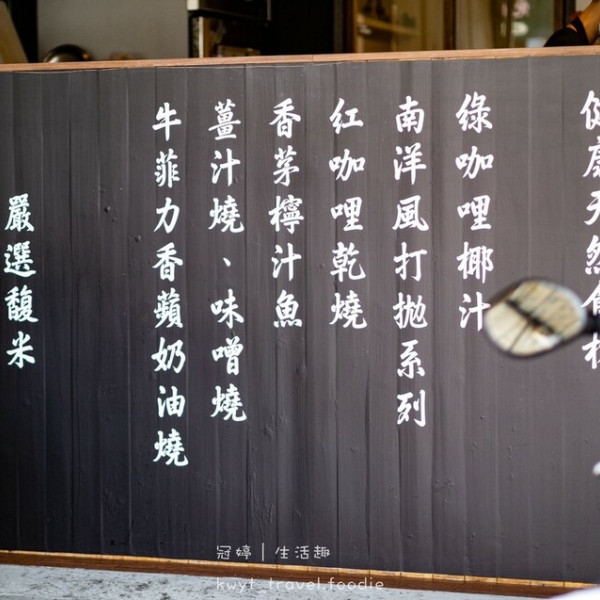 健康天然食材
綠咖哩椰汁
南洋風打拋系列
紅咖哩乾燒
香茅檸汁魚
薑汁燒、味噌燒
牛菲力香蘋奶油燒
嚴選馥米
冠婷|生活趣
kwyt_travel.foodie